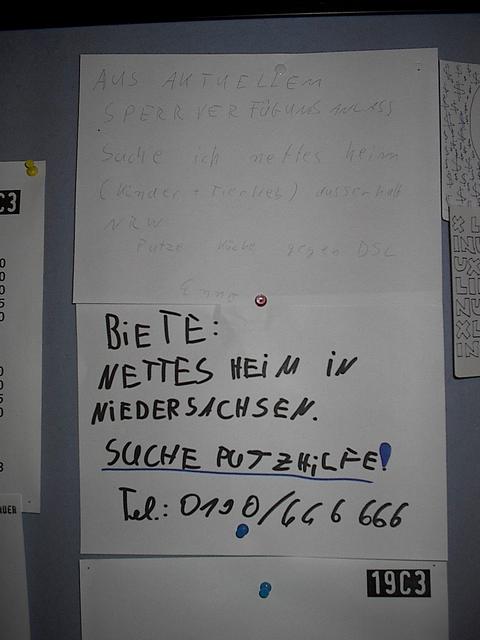 AUS AKTUELLEM
SPERRVERFÜGUNGSANLASS
Suche ich nettes heim
(Kinder + Tierlieb) ausserhalb
NRW
Putze Küche gegen DSL
Enno
BiETE:
NETTES HEiM iN
NiEDERSACHSEN.
SUCHE PUTZHiLFE!
Tel.: 0190/666 666
19C3
C3
AUER
LINUX
LINUX